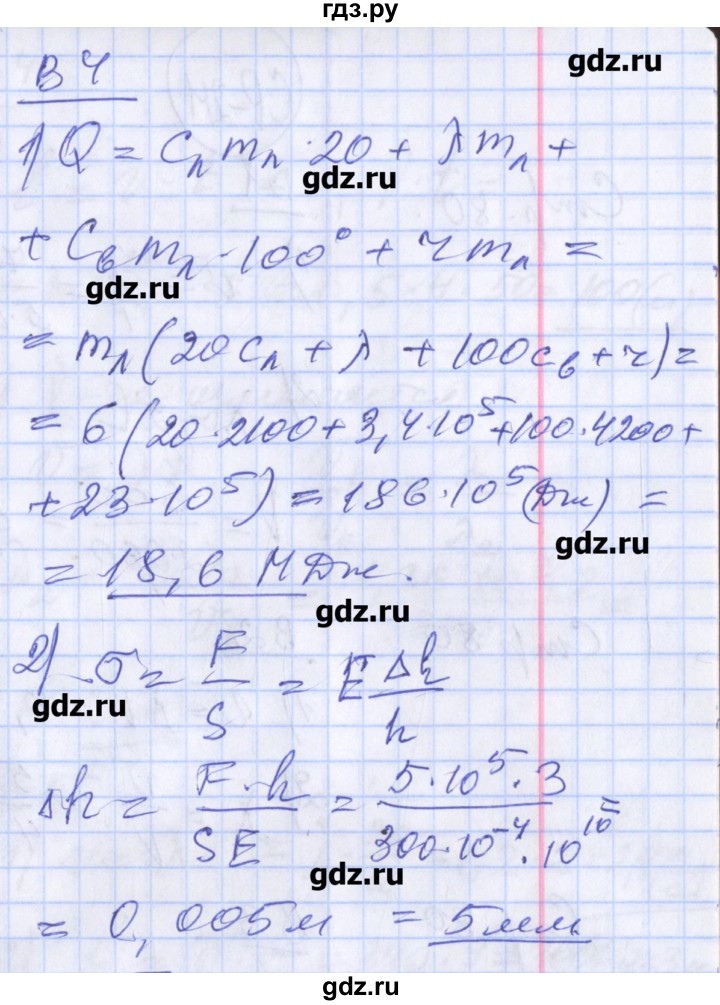 гдз.ру
В 4
gdz.ru
1) Q = cл mл · 20 + λ mл +
gdz.ru
+ cв mл · 100° + r mл =
gdz.ru
= mл (20 cл + λ + 100 cв + r) =
= 6 (20 · 2100 + 3,4 · 10⁵ + 100 · 4200 +
+ 23 · 10⁵) = 186 · 10⁵ (Дж) =
gdz.ru
= 18,6 МДж.
gdz.ru
2) σ = F/S = E Δh/h
gdz.ru
Δh = F · h / SE = 5 · 10⁵ · 3 / 300 · 10⁻⁴ · 10¹⁰ =
gdz.ru
= 0,005 м = 5 мм
gdz.ru